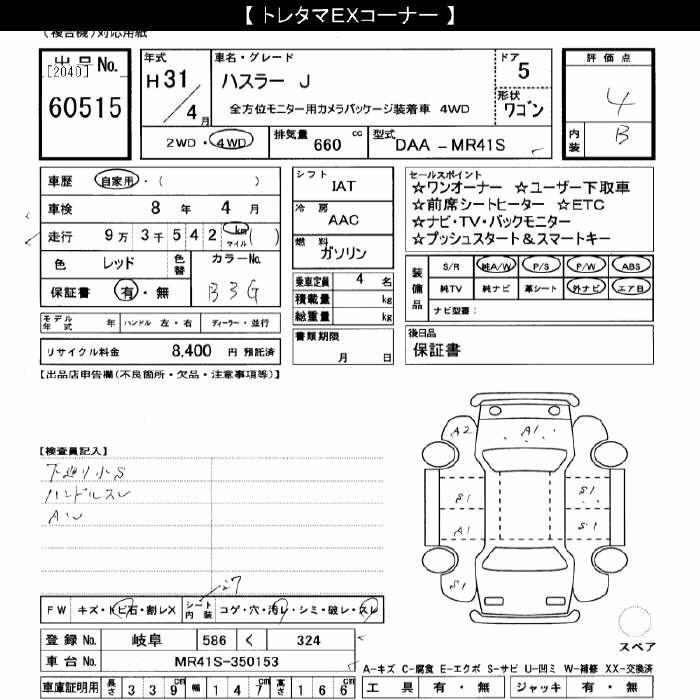 【 トレタマEXコーナー 】
(複合機)対応用紙
出品 No.
[2040]
60515
年式
H 31
4 月
車名・グレード
ハスラー J
全方位モニター用カメラパッケージ装着車 4WD
ドア
5
形状
ワゴン
評価点
4
内装
B
2WD・4WD
排気量
660 cc
型式
DAA-MR41S
車歴
自家用・( )
車検
8 年 4 月
走行
9万 3千 5 4 2 km マイル ( )
色
レッド
色替
カラーNo.
B3G
保証書
有・無
モデル年式 年
ハンドル 左・右
ディーラー・並行
リサイクル料金 8,400 円 預託済
シフト
IAT
冷房
AAC
燃料
ガソリン
乗車定員 4 名
積載量 kg
総重量 kg
書類期限
月 日
セールスポイント
☆ワンオーナー ☆ユーザー下取車
☆前席シートヒーター ☆ETC
☆ナビ・TV・バックモニター
☆プッシュスタート&スマートキー
装備品
S/R 純A/W P/S P/W ABS
純TV 純ナビ 革シート 外ナビ エアB
ナビ型番:
後日品
保証書
【出品店申告欄(不良箇所・欠品・注意事項等)】
【検査員記入】
下廻り小S
ハンドルスレ
A2
A1
S1
S1
A1
S1
S1
FW キズ・トビ石・割レX
シート内装 コゲ・穴・汚レ・シミ・破レ・スレ
登録 No. 岐阜 586 く 324
車台 No. MR41S-350153
車庫証明用 長さ 339cm 幅 147cm 高さ 166cm
スペア
A-キズ C-腐食 E-エクボ S-サビ U-凹ミ W-補修 XX-交換済
工具 有・無
ジャッキ 有・無